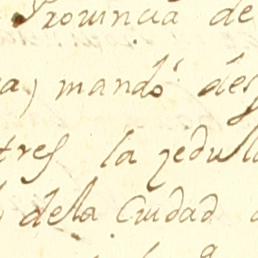 Provincia de
a) mandó des
tres la zedula
dela Ciudad